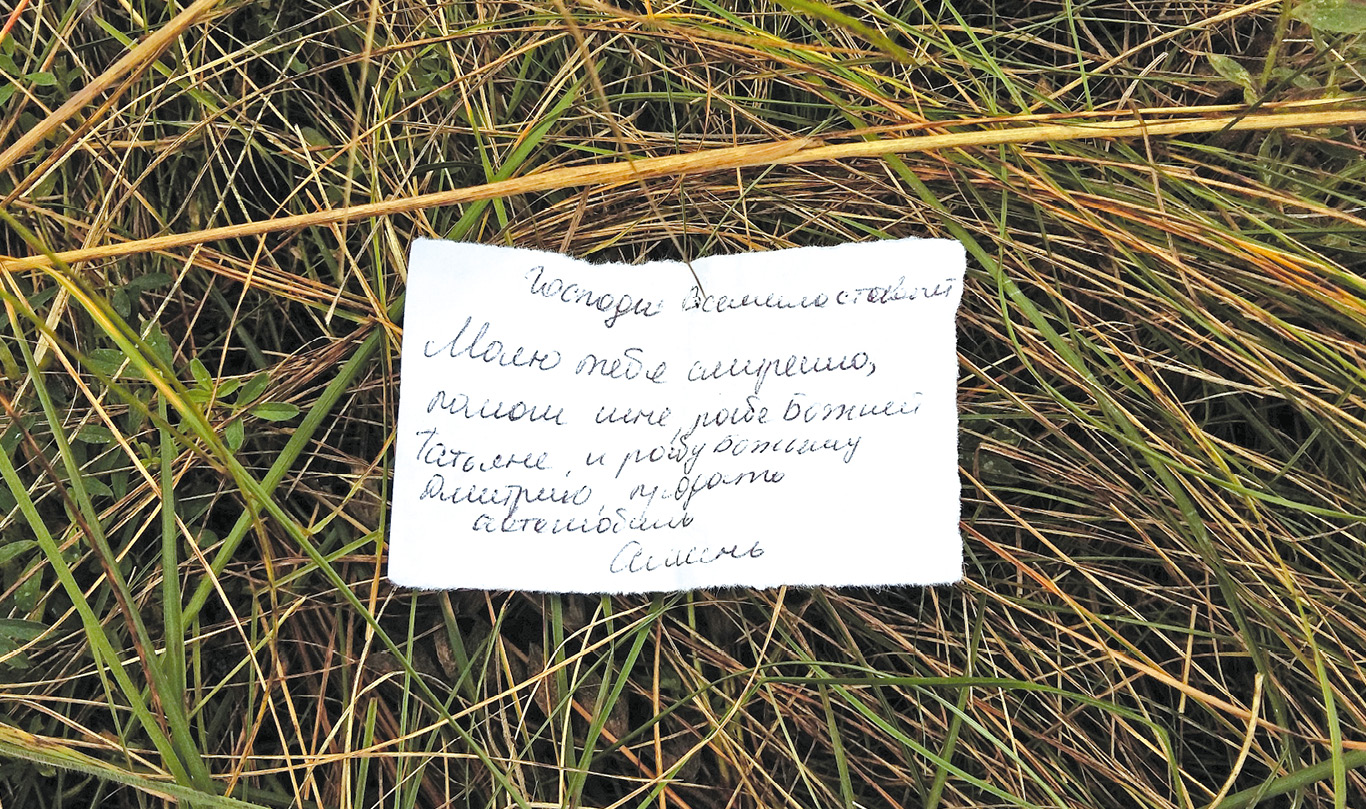 Господи всемилостивый
Молю тебя смиренно,
помоги мне, рабе Божией
Татьяне, и рабу Божьему
Дмитрию продать
автомобиль
Аминь